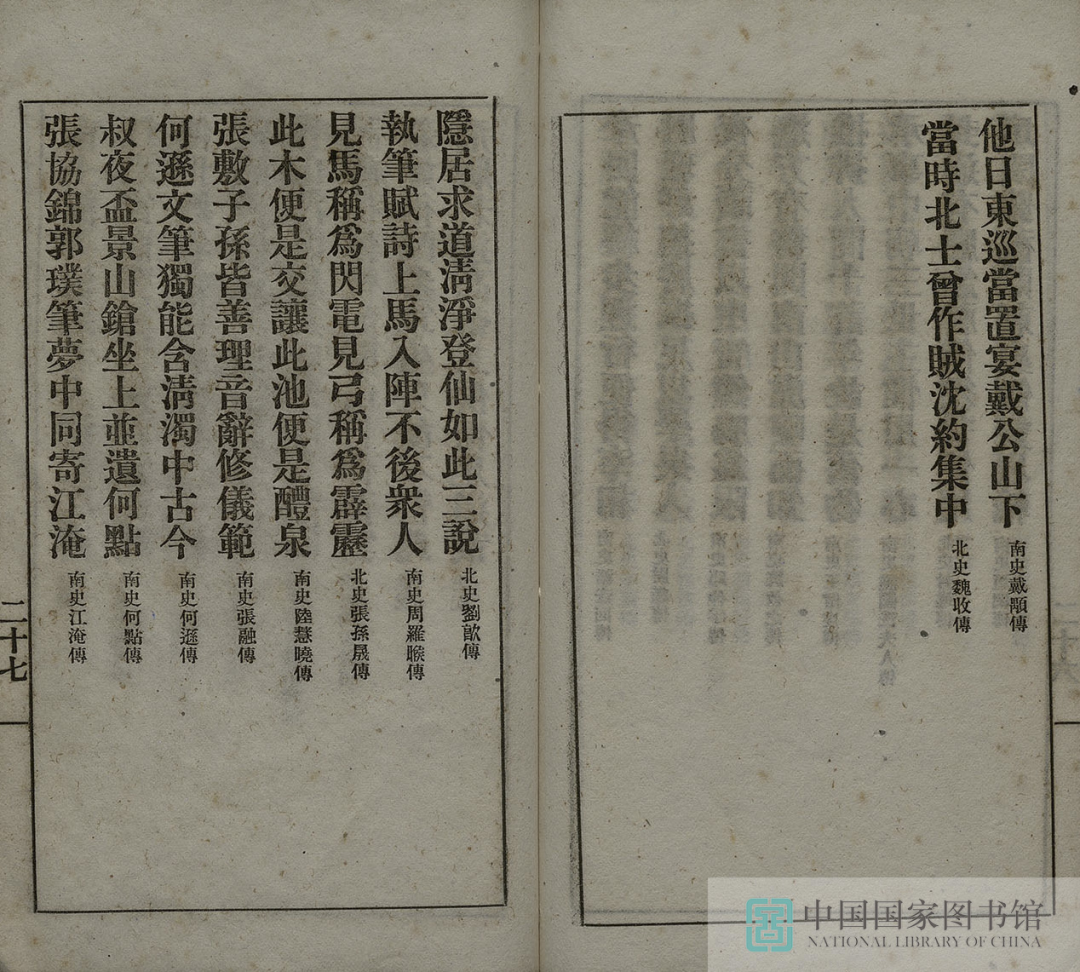 他日東巡當置宴戴公山下 南史戴顒傳
當時北士曾作賊沈約集中 北史魏收傳
隱居求道清淨登仙如此三說 北史劉歊傳
執筆賦詩上馬入陣不後衆人 南史周羅睺傳
見馬稱爲閃電見弓稱爲霹靂 北史張孫晟傳
此木便是交讓此池便是醴泉 南史陸慧曉傳
張敷子孫皆善理音辭修儀範 南史張融傳
何遜文筆獨能含清濁中古今 南史何遜傳
叔夜盃景山鎗坐上並遺何點 南史何點傳
張協錦郭璞筆夢中同寄江淹 南史江淹傳
二十七
中国国家图书馆
NATIONAL LIBRARY OF CHINA